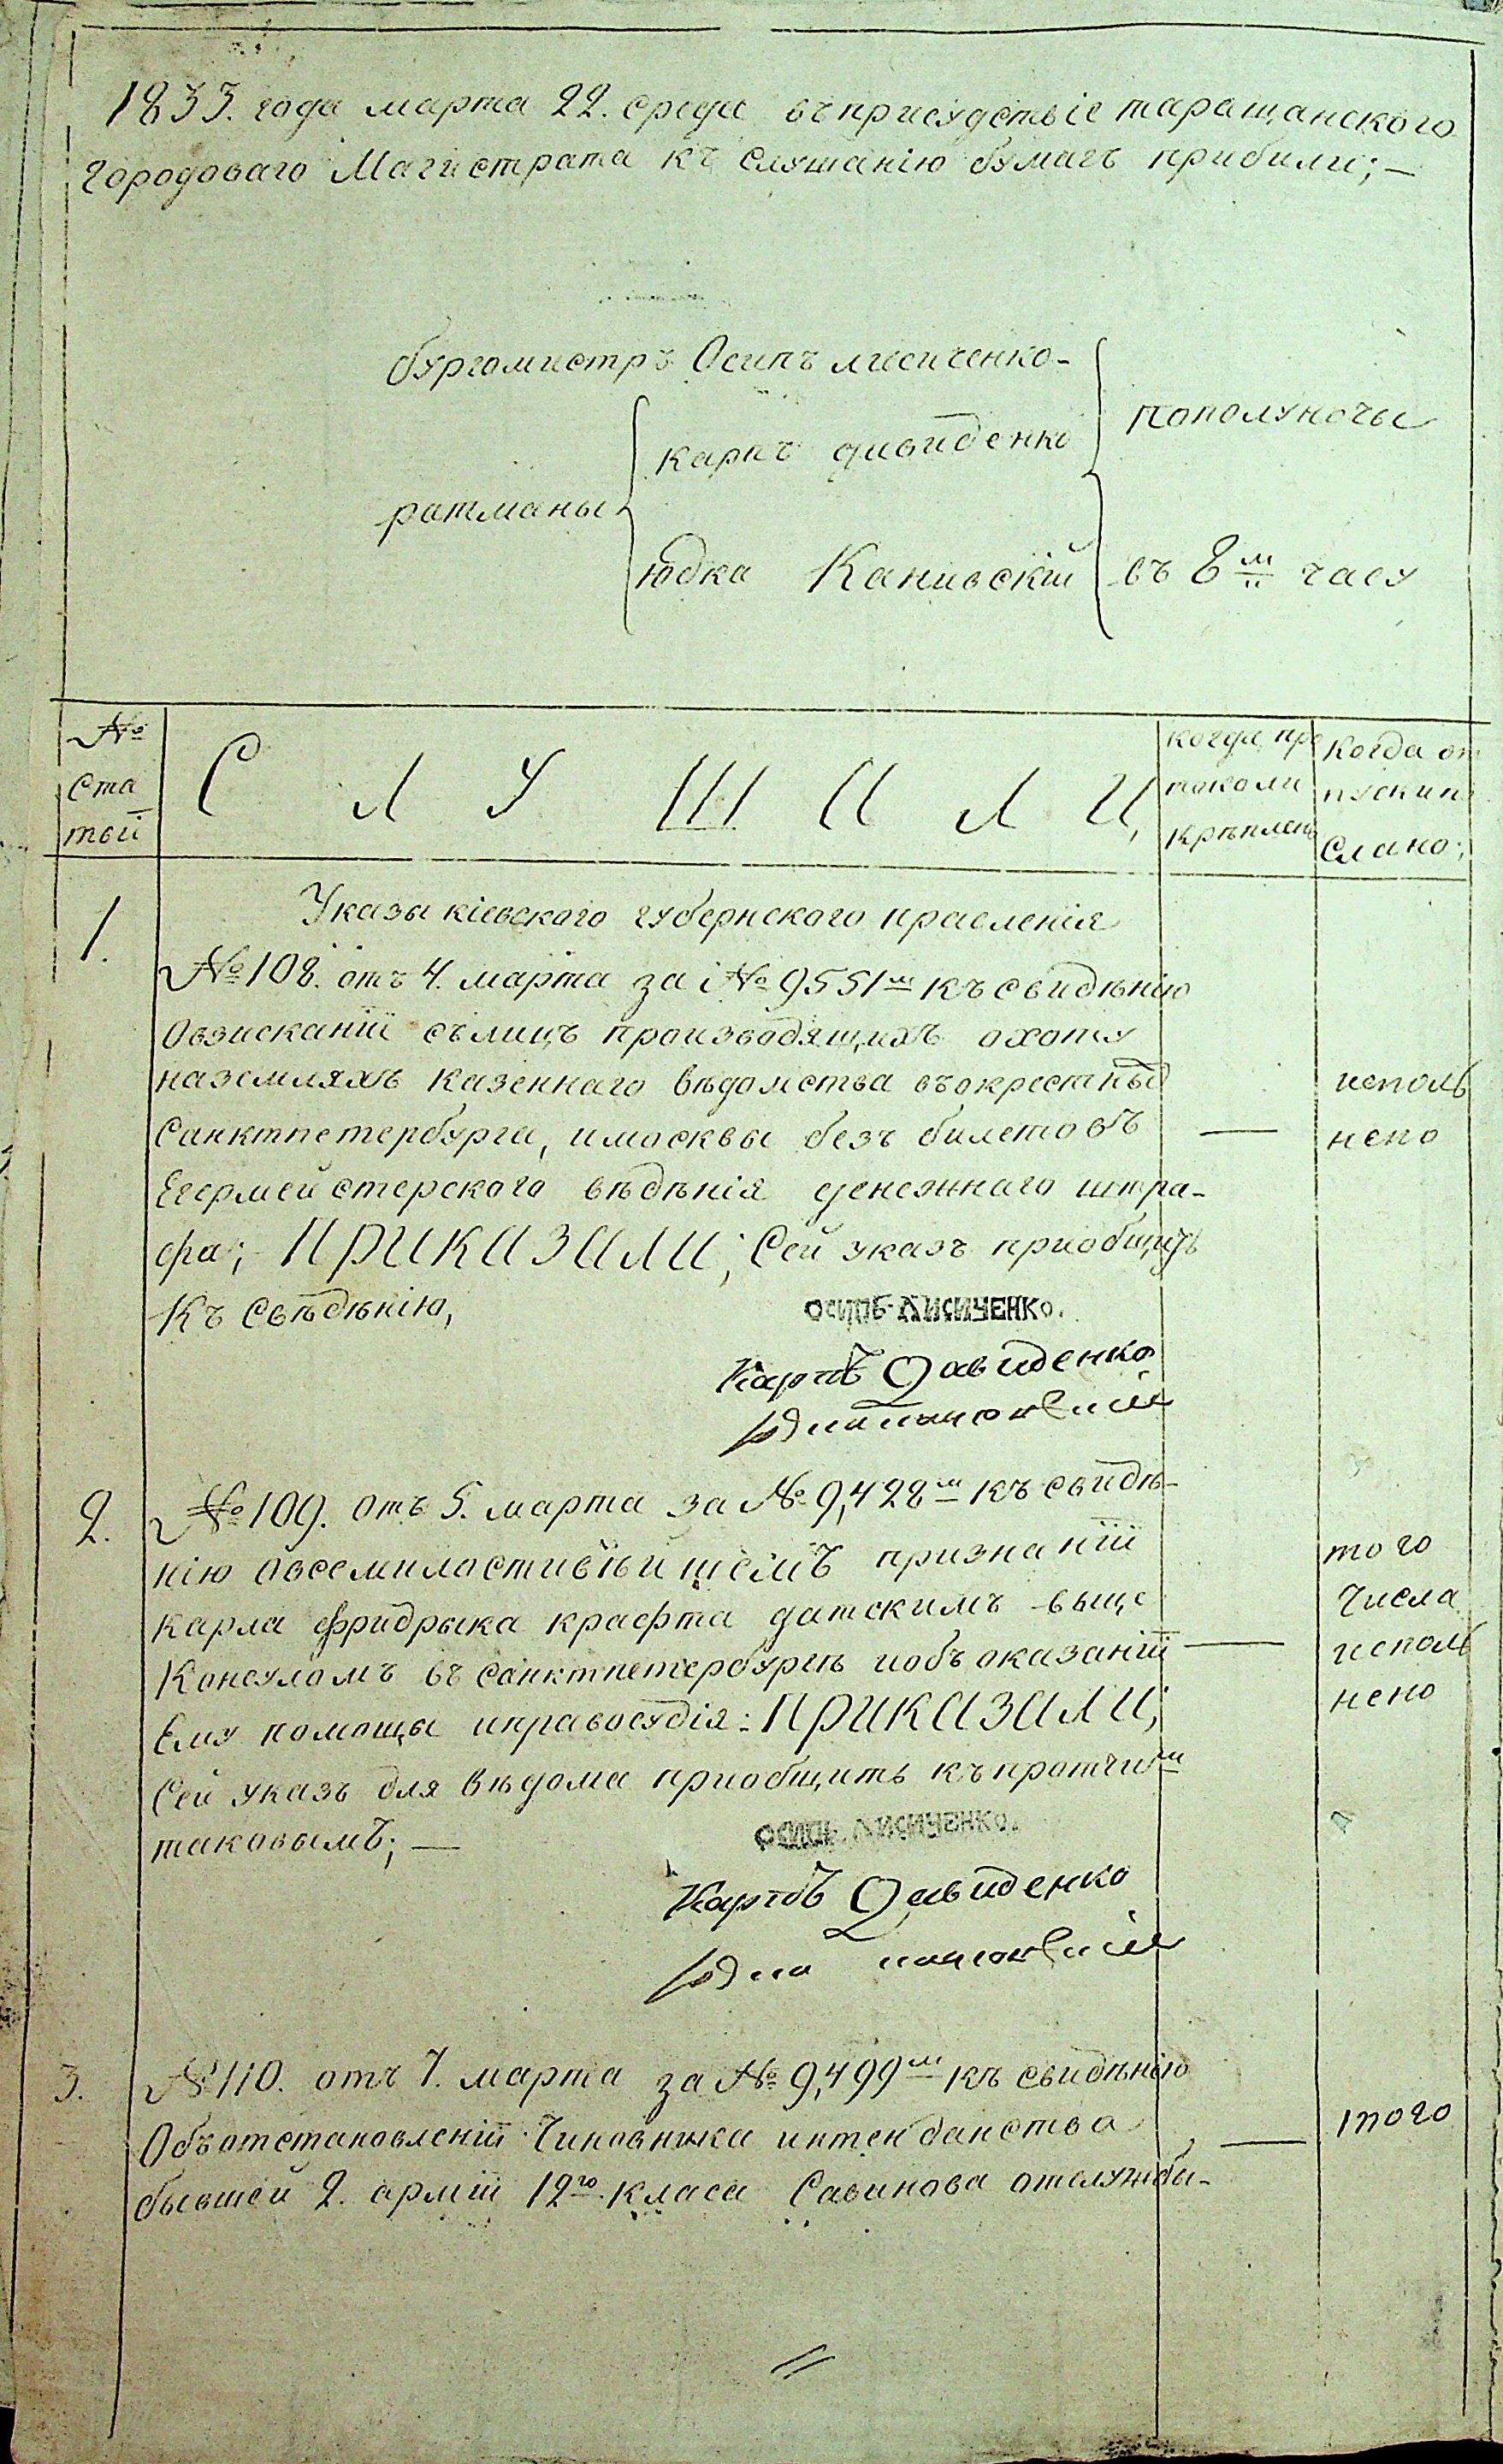 1833. года марта 22. среда въ присудствіе таращанского
городоваго Магистрата къ слушанію бумагъ прибыли; —
бургомистръ Осипъ лисиченко-
ратманы
карпъ дивиденко
пополуночы
юдка Каниевскій
въ 8м часу
№
Ста
тей
С Л У Ш А Л И,
когда про
токолы
крѣплены
Когда от
пускины
Слано;
1.
Указы кіевского губернского правленія
№ 108. отъ 4. марта за № 9551м къ свидѣнію
Овзысканіи сълицъ производящихъ охоту
наземляхъ казеннаго вѣдомства въокрестныо
Санктпетербурга, имосквы безъ билетовъ
Егермейстерского вѣдѣнія денежнаго штра-
фа; ПРИКАЗАЛИ; Сей указъ приобщить
Къ Свѣдѣнію,
исполь
нено
Осипъ-Лисиченко.
Карпъ Давиденко
2.
№ 109. отъ 5. марта за № 9,428м къ свидѣ-
нію Овсемиластивѣйшемъ признаніи
карла фридрыка крафта датскимъ выце
Консуломъ въ санктпетербургѣ иобъ оказаніи
Ему помощы иправосудія: ПРИКАЗАЛИ;
Сей указъ для вѣдома приобщить къ протчим
таковымъ; —
того
числа
исполь
нено
Осипъ. Лисиченко.
Карпъ Давиденко
3.
№ 110. отъ 7. марта за № 9,499м къ свидѣнію
Объотстановленіи Чиновника интенданства
бывшей 2. арміи 12го класа Савинова отслужбы-
того